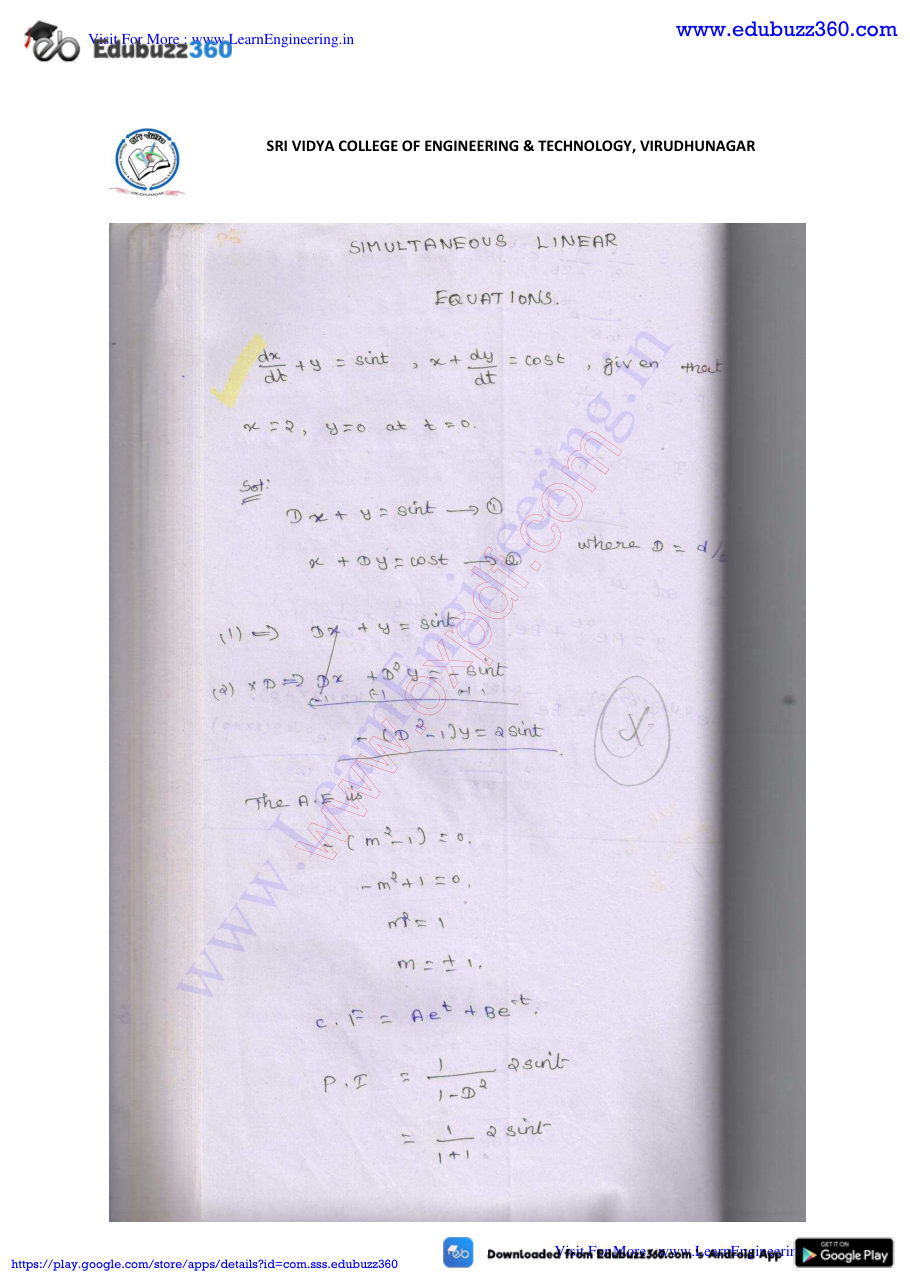 Visit For More : www.LearnEngineering.in
Edubuzz360
www.edubuzz360.com
SRI VIDYA COLLEGE OF ENGINEERING & TECHNOLOGY, VIRUDHUNAGAR
SIMULTANEOUS LINEAR
EQUATIONS.
dx/dt + y = sint , x + dy/dt = cost , given that
x = 2, y = 0 at t = 0.
Sol:
Dx + y = sint → ①
x + Dy = cost → ② where D = d/
(1) ⇒ Dx + y = sint
(2) × D ⇒ Dx + D² y = - sint
(-) (-) (+)
- (D² - 1) y = 2 sint
The A.E is
- (m² - 1) = 0.
- m² + 1 = 0.
m² = 1
m = ± 1.
C.F = Ae^t + Be^-t.
P.I = 1/(1-D²) 2 sint
= 1/(1+1) 2 sint
www.LearnEngineering.in
www.oxpdi.com
https://play.google.com/store/apps/details?id=com.sss.edubuzz360
Downloaded from Edubuzz360.com 's Android App
Visit For More : www.LearnEngineerin
GET IT ON
Google Play